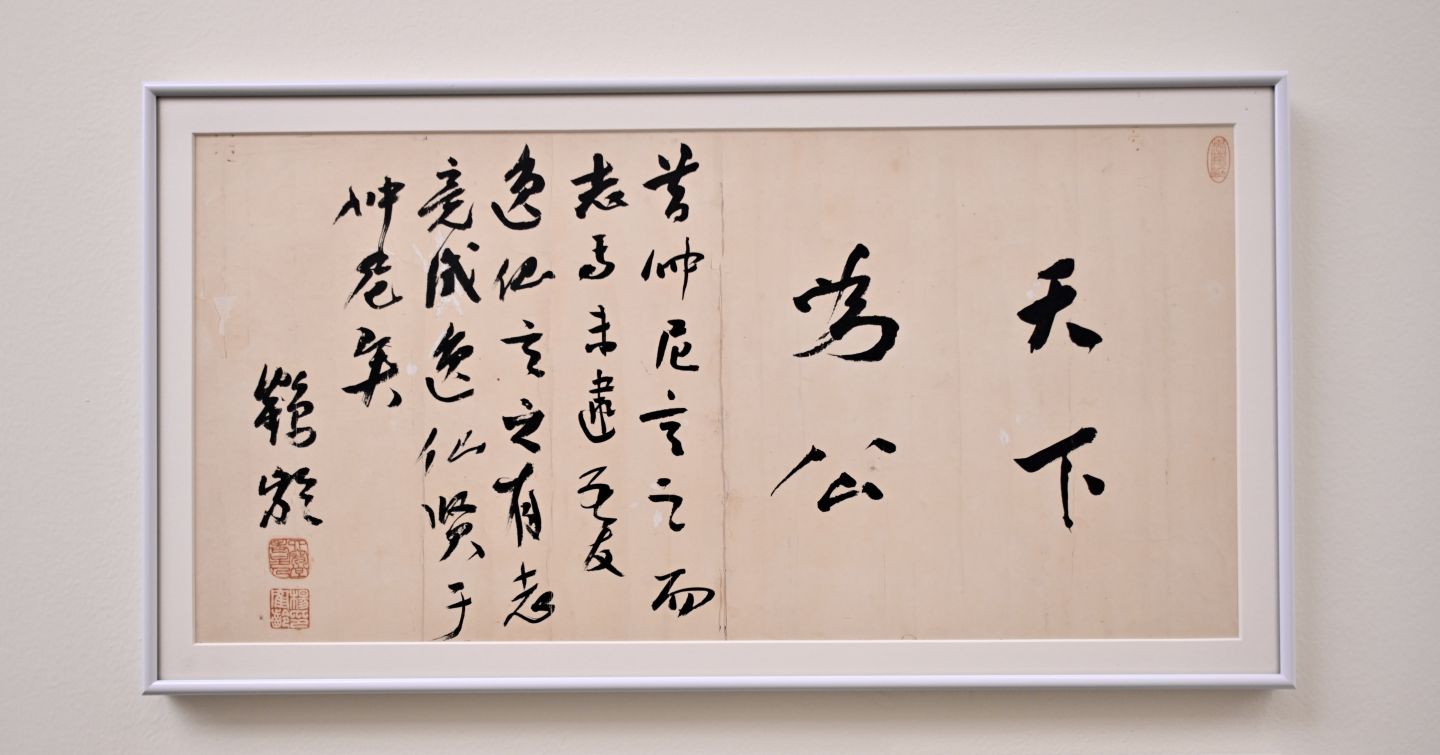 天下
為公
昔仲尼言之而
志焉未逮吾友
逸仙言之有志
竟成逸仙賢于
仲尼矣
鶴齡
楊印鶴齡